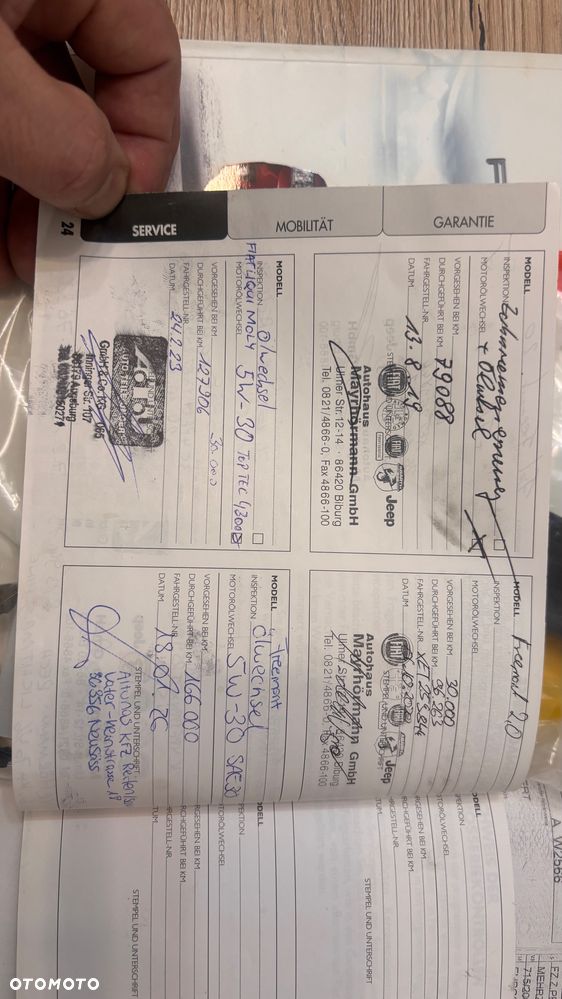 24
SERVICE
MOBILITÄT
GARANTIE
MODELL
INSPEKTION Zahnriemenerneuerung
MOTORÖLWECHSEL + Ölwechsel
VORGESEHEN BEI KM
DURCHGEFÜHRT BEI KM 79088
FAHRGESTELL-NR.
DATUM 13.8.19
FIAT
Jeep
Autohaus
Mayrhörmann GmbH
Ulmer Str. 12-14 · 86420 Biburg
Tel. 0821/4866-0, Fax 4866-100
MODELL Freemont 2.0
INSPEKTION
MOTORÖLWECHSEL
VORGESEHEN BEI KM 30.000
DURCHGEFÜHRT BEI KM
FAHRGESTELL-NR.
DATUM
STEMPEL UND UNTERSCHRIFT
FIAT
Jeep
Autohaus
Mayrhörmann GmbH
Tel. 0821/4866-0, Fax 4866-100
MODELL
FIAT LIQUI MOLY
INSPEKTION Ölwechsel
MOTORÖLWECHSEL 5W-30 TOP TEC 4300
VORGESEHEN BEI KM 30.000
DURCHGEFÜHRT BEI KM 127906
FAHRGESTELL-NR.
DATUM 24.2.23
GmbH & Co. KG
Inninger Str. 107
86179 Augsburg
MODELL Freemont
INSPEKTION Ölwechsel
MOTORÖLWECHSEL 5W-30 SAE 30
VORGESEHEN BEI KM
DURCHGEFÜHRT BEI KM 166000
FAHRGESTELL-NR.
DATUM 18.01.26
STEMPEL UND UNTERSCHRIFT
Neusäss
MODELL
INSPEKTION
MOTORÖLWECHSEL
VORGESEHEN BEI KM
DURCHGEFÜHRT BEI KM
FAHRGESTELL-NR.
STEMPEL UND UNTERSCHRIFT
VORGESEHEN BEI KM
DURCHGEFÜHRT BEI KM
FAHRGESTELL-NR.
STEMPEL UND UNTERSCHRIFT
OTOMOTO